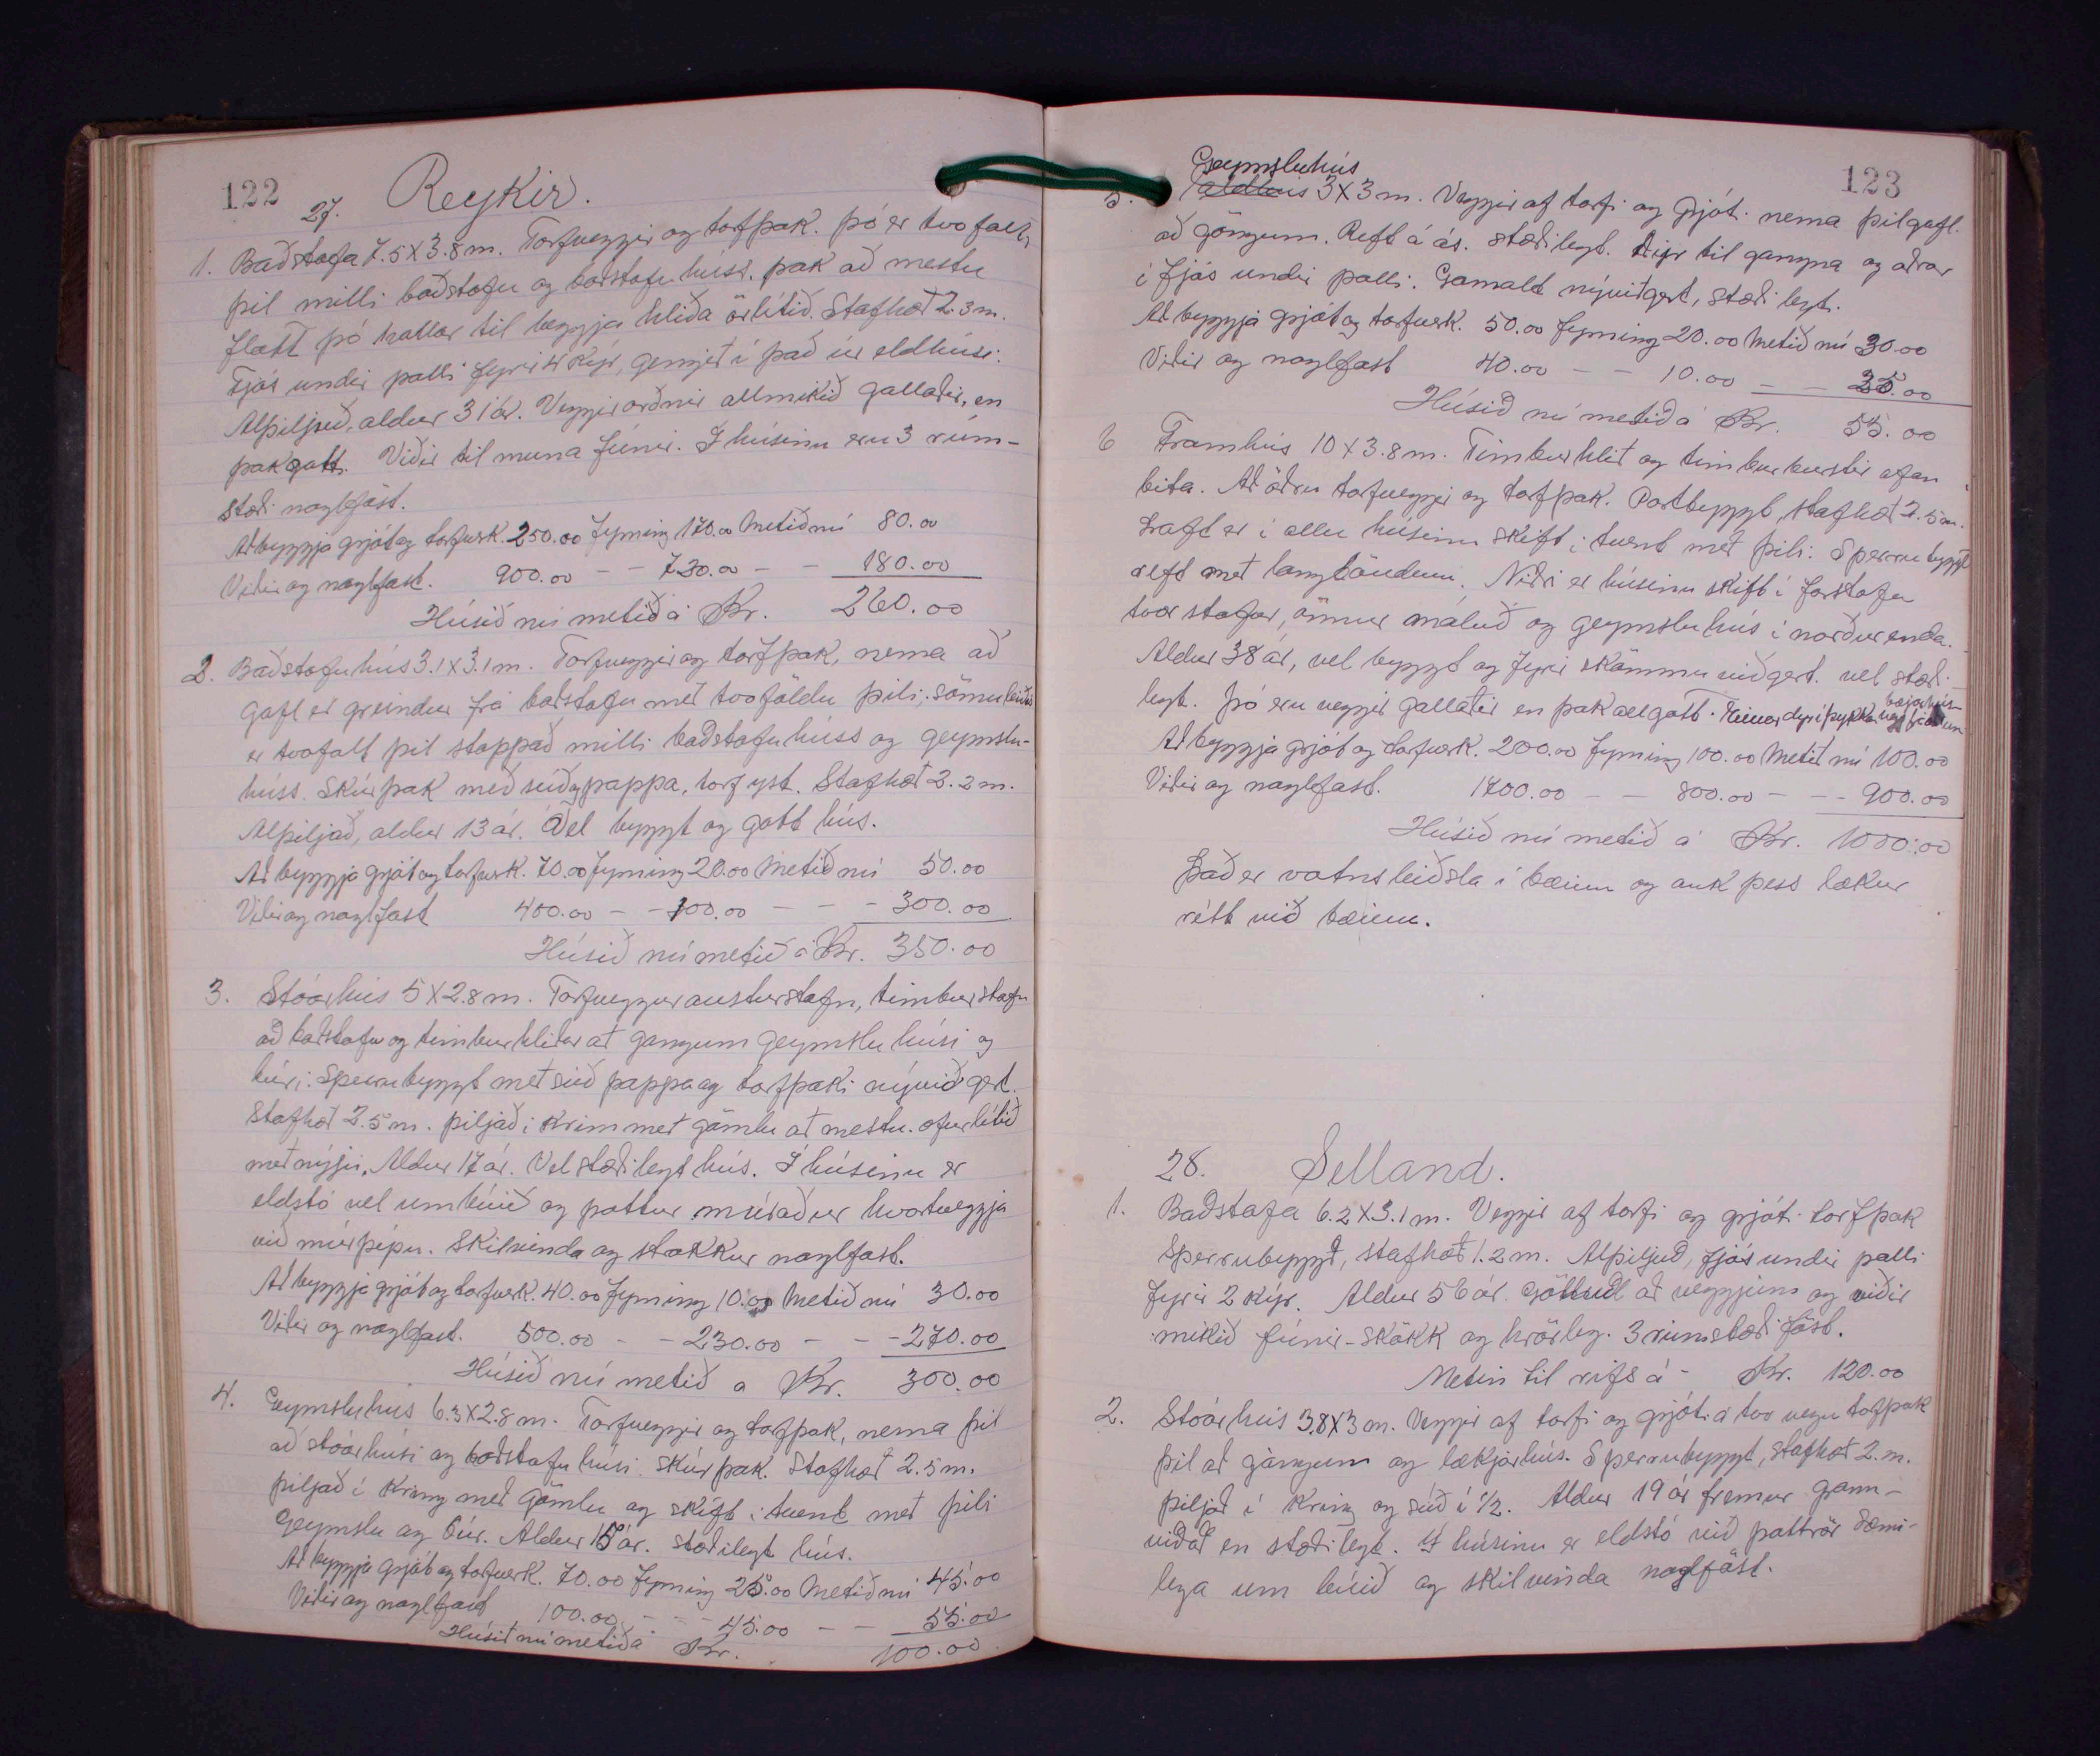 122
27. Reykir.
1. Baðstofa 7.5x3.8m. Torfveggir og torfþak. þó er tvofalt
þil milli baðstofu og baðstofuhúss. þak að mestu
flatt þó hallar til beggja hliða örlítið. Stafhæð 2.3m.
Fjós undir palli fyrir 4 kýr, gengið í það úr eldhúsi.
Alþiljuð, aldur 31 ár. Veggir orðnir allmikið gallaðir, en
þak gott. Viðir til muna fúnir. I húsinu eru 3 rúm-
stæði naglföst.
At byggja grjót og torfverk. 250.00 fyrning 170.00 Metið nú 80.00
Viðir og naglfast. 900.00 - - 730.00 - - 180.00
Húsið nú metið á Kr. 260.00
2. Baðstofuhús 3.1x3.1m. Torfveggir og torfþak, nema að
gafl er greindur frá baðstofu með tvoföldu þili, sömuleiðis
er tvofalt þil stoppað milli baðstofuhúss og geymslu-
húss. Skúrþak með súð og pappa, torf yst. Stafhæð 2.2m.
Alþiljað, aldur 13 ár. Vel byggt og gott hús.
At byggja grjót og torfverk. 70.00 fyrning 20.00 Metið nú 50.00
Viðir og naglfast 400.00 - - 100.00 - - - 300.00
Húsið nú metið á Kr. 350.00
3. Stóarhús 5x2.8m. Torfveggur austurstafn, timburstafn
að baðstofu og timburhliðar að gangum geymsluhúsi og
búri. Sperrubyggt með súð pappa og torfþaki nýviðgert.
Stafhæð 2.5m. þiljað í kring með gömlu að mestu. ofurlítið
með nýju. Aldur 17 ár. Vel stæðilegt hús. I húsinu er
eldstó vel umbúið og pottur múraður hvortveggja
við múrpípu. Skilvinda og stokkur naglfast.
At byggja grjót og torfverk. 40.00 fyrning 10.00 Metið nú 30.00
Viðir og naglfast. 500.00 - - 230.00 - - - 270.00
Húsið nú metið a Kr. 300.00
4. Geymsluhús 6.3x2.8m. Torfveggir og torfþak, nema þil
að stóarhúsi og baðstofuhúsi. Skúrþak. Stafhæð 2.5m.
þiljað í kring með gömlu og skift í tvent með þili
geymslu og búr. Aldur 15 ár. stæðilegt hús.
At byggja grjót og torfverk. 70.00 fyrning 25.00 Metið nú 45.00
Viðir og naglfast 100.00 - - - 45.00 - - 55.00
Húsið nú metið á Kr. 100.00
123
Geymsluhús
5. 3x3m. Veggir af torfi og grjóti nema þilgafl
að göngum. Reft á ás. stæðilegt. Dyr til gangna og aðrar
í fjós undir palli. Gamalt nýviðgert, stæðilegt.
At byggja grjót og torfverk. 50.00 fyrning 20.00 Metið nú 30.00
Viðir og naglfast 40.00 - - 10.00 - - 25.00
Húsið nú metið á Kr. 55.00
6 Framhús 10x3.8m. Timburhlið og timburburstir ofan
bita. At öðru torfveggir og torfþak. Portbyggt, stafhæð 2.5m.
Loft er í öllu húsinu skift í tvent með þili. Sperrubyggt
reft með langböndum. Niðri er húsinu skift í forstofu
tvær stofur, önnur máluð og geymsluhús í norðurenda.
Aldur 38 ár, vel byggt og fyrir skömmu viðgert. vel stæði-
legt. þó eru veggir gallaðir en þak allgott. Tvennar dyr í þykkum
bæjarhús-
At byggja grjót og torfverk. 200.00 fyrning 100.00 Metið nú 100.00
Viðir og naglfast. 1700.00 - - 800.00 - - - 900.00
Húsið nú metið á Kr. 1000.00
Það er vatnsleiðsla í bæinn og auk þess lækur
rétt við bæinn.
28. Selland.
1. Baðstofa 6.2x3.1m. Veggir af torfi og grjóti torfþak
Sperrubyggð, stafhæð 1.2m. Alþiljuð, fjós undir palli
fyrir 2 kýr. Aldur 56 ár. Gölluð að veggjum og viðir
mikið fúnir - skökk og hrörleg. 3 rúmstæði föst.
Metin til rifs á - Kr. 120.00
2. Stóarhús 3.8x3m. Veggir af torfi og grjóti á tvo vegu torfþak
þil að göngum og lækjarhús. Sperrubyggt, stafhæð 2.m.
þiljað í kring og súð í 1/2. Aldur 19 ár fremur grann-
viðað en stæðilegt. I húsinu er eldstó við pottrör sæmi-
lega um búið og skilvinda naglföst.